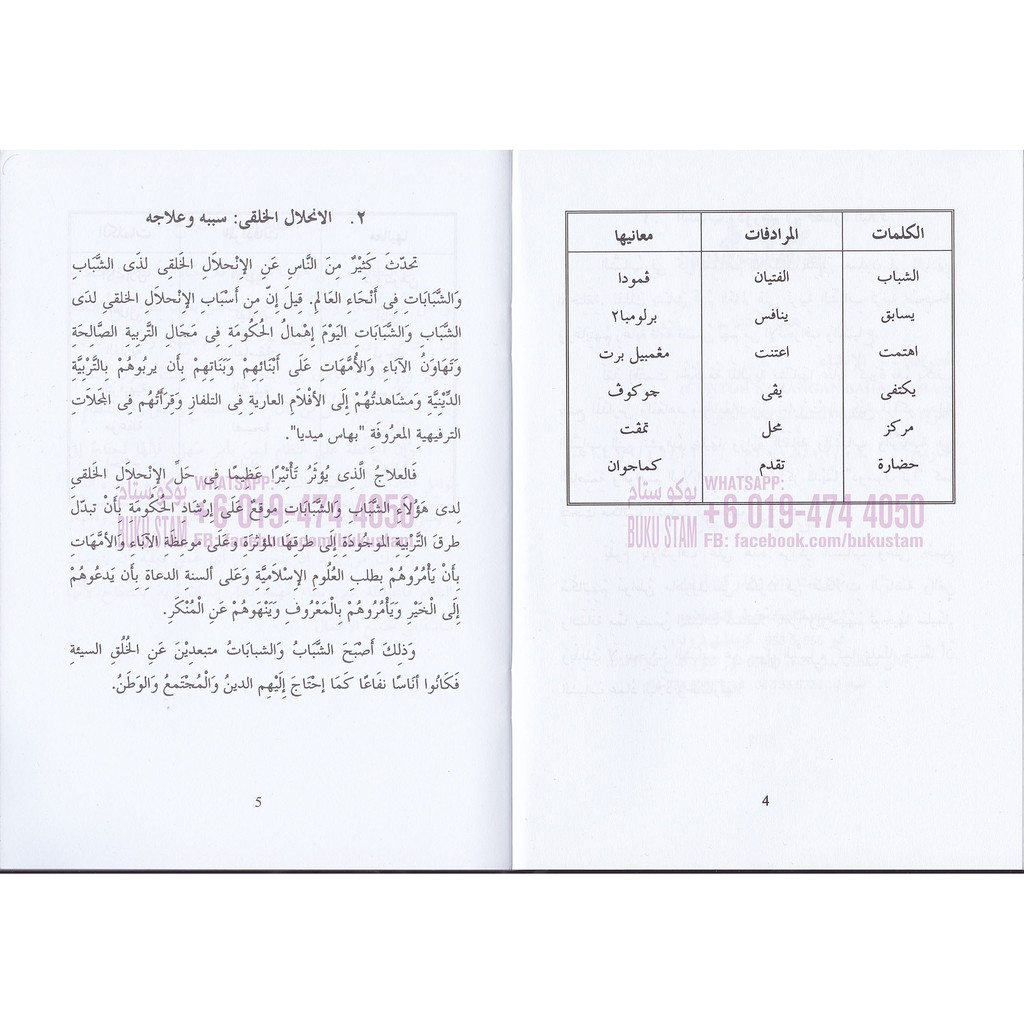 الكلمات المرادفات معانيها
الشباب الفتيان ڤمودا
يسابق ينافس برلومبا٢
اهتمت اعتنت مڠمبيل برت
يكتفى يڤى جوكوڤ
مركز محل تمڤت
حضارة تقدم كماجوان
بوكو ستام WHATSAPP:
BUKU STAM +6 019-474 4050
FB: facebook.com/bukustam
4
٢. الانحلال الخلقى: سببه وعلاجه
تحدّثَ كَثِيْرٌ مِنَ النَّاسِ عَنِ الإِنْحلاَلِ الخلقِى لذَى الشَّبَابِ
وَالشَّبَابَاتِ فِى أَنْحَاءِ العَالمِ. قِيلَ إِنّ مِن أَسْبَابِ الإِنْحلاَلِ الخلقِى لدَى
الشَّبَابِ وَالشَّبَابَاتِ اليَوْمَ إِهْمالُ الحُكُومَةِ فِى مَجَالِ التَّربِيةِ الصَّالحَةِ
وَتَهَاوَنُ الآبَاءِ وَالأُمَّهَاتِ عَلَى أَبْنَائِهِمْ وَبَنَاتِهِمْ بِأَن يربُوهُمْ بِالتَّرْبِيَّةِ
الدِّيْنِيَّةِ وَمشَاهَدتُهُمْ إِلَى الأَفْلاَمِ العارِيةِ فِى التلفازِ وَقِرَأَتُهُم فِى المَجَلاَتِ
الترفيهيةِ المعرُوفَة "بهاس ميديا".
فَالعلاجُ الَّذى يُؤثَرُ تَأْثِيْرًا عَظِيمًا فِى حَلِّ الإِنْحلاَلِ الخلقِى
لِدى هَؤُلاَءِ الشَّبَابِ وَالشَّبَابَاتِ موقعٌ عَلَى إِرْشَادِ الحُكُومَةِ بِأَن تبدّلَ
طرقَ التَّرْبِيَّةِ الموجُودةِ إِلَى طرقِهَا المؤثرَةِ وعَلَى موعظَةِ الآبَاءِ وَالأُمَّهَاتِ
بِأَنْ يَأْمُرُوهُمْ بِطلبِ العُلُومِ الإِسْلاَمِيَّةِ وَعَلَى ألسنةِ الدعاةِ بِأَن يَدعُوهُمْ
إِلَى الْخَيْرِ وَيَأْمُرُوهُمْ بِالْمَعْرُوفِ وَيَنْهَوهُمْ عَنِ الْمُنْكَرِ.
وَذلِكَ أَصْبَحَ الشَّبَابُ وَالشَبابَاتُ متبعدِيْنَ عَنِ الخُلُقِ السيئةِ
فَكَانُوا أُنَاسًا نفَاعًا كَمَا إِحْتَاجَ إِلَيْهِم الدينُ وَالْمُجْتَمعُ وَالوَطنُ.
بوكو ستام WHATSAPP:
BUKU STAM +6 019-474 4050
FB: facebook.com/bukustam
5